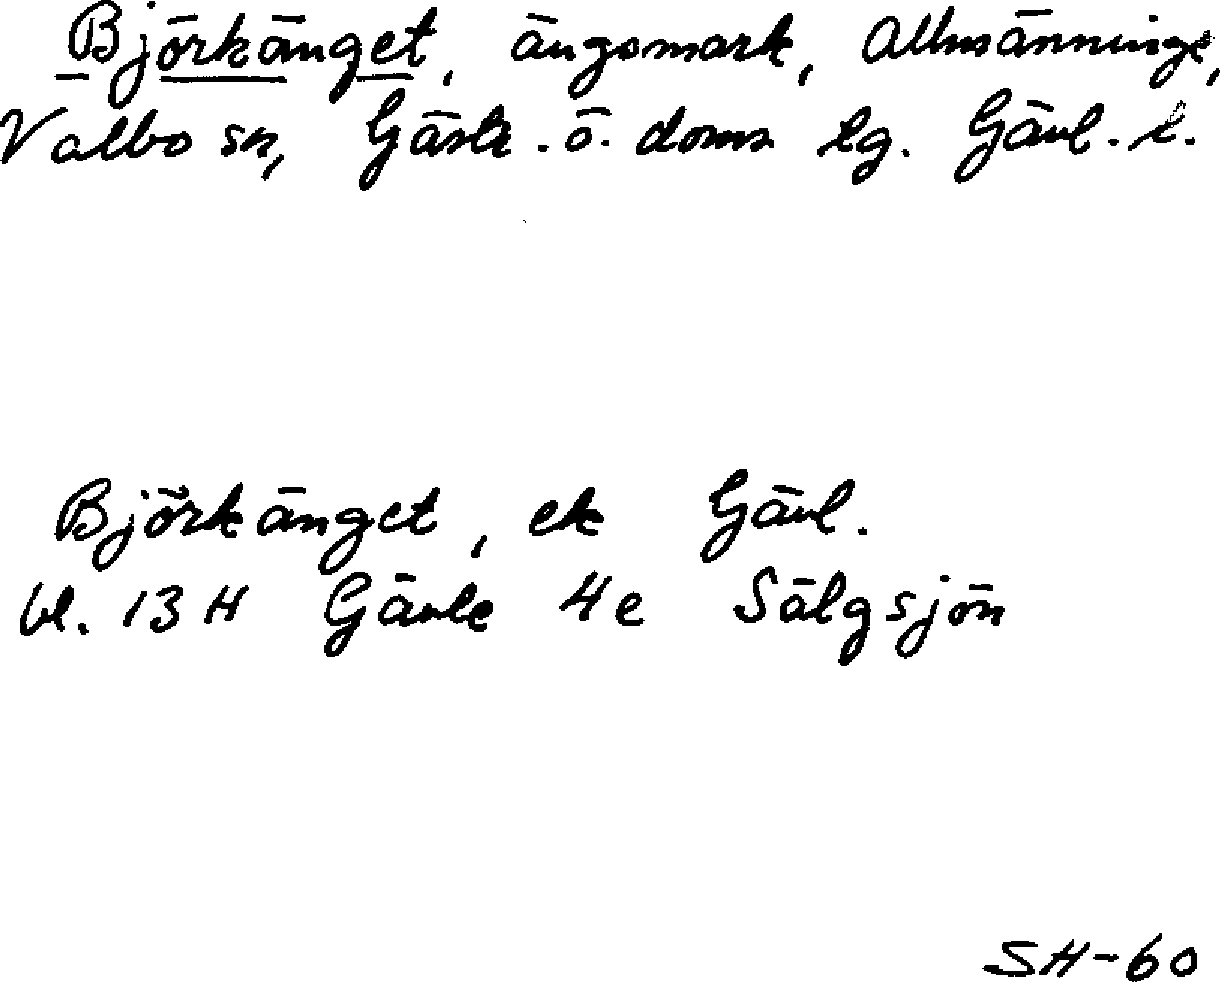 Björkänget, ängsmark, Allmänninge,
Valbo sn, Gästr. ö. doms lg. Gävl. l.
Björkänget, ek Gävl.
bl. 13 H Gävle 4e Sälgsjön
SH-60